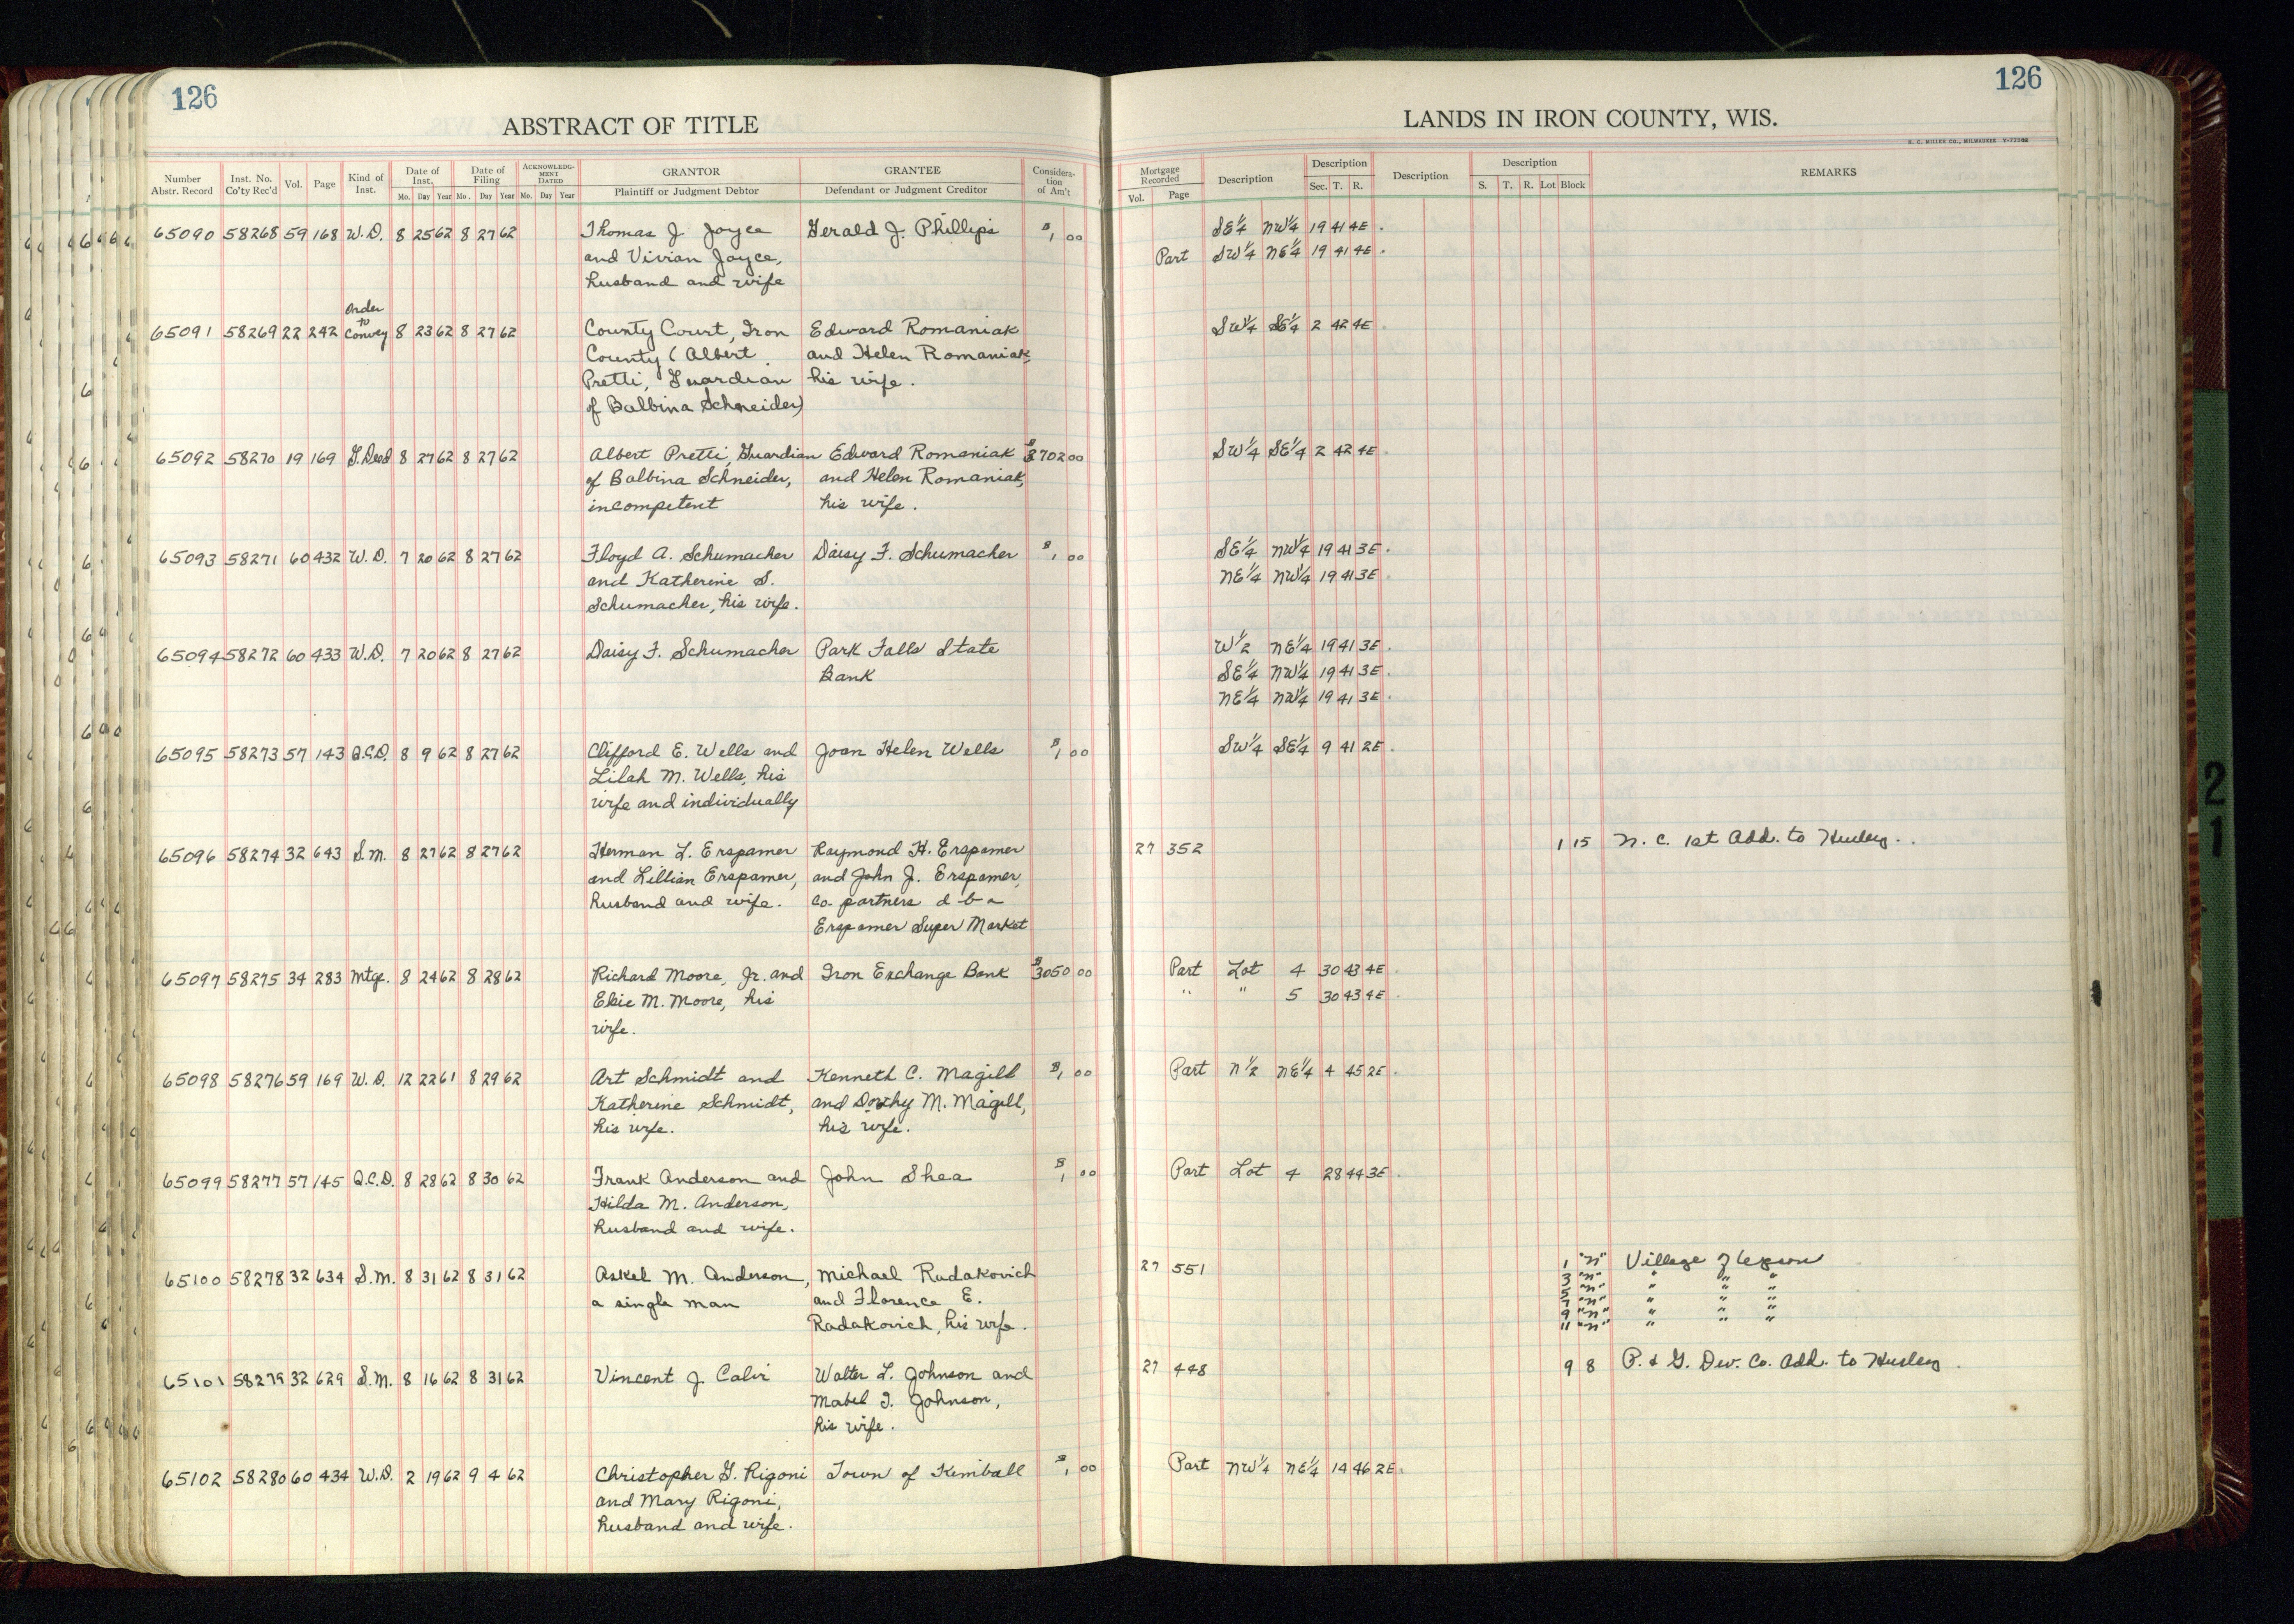 126
126
ABSTRACT OF TITLE
LANDS IN IRON COUNTY, WIS.
H. C. MILLER CO., MILWAUKEE
Number Abstr. Record Inst. No. Co'ty Rec'd Vol. Page Kind of Inst. Date of Inst. Mo. Day Year Date of Filing Mo. Day Year ACKNOWLEDGMENT DATED Mo. Day Year GRANTOR Plaintiff or Judgment Debtor GRANTEE Defendant or Judgment Creditor Consideration of Am't
Mortgage Recorded Vol. Page Description Description Sec. T. R. Description Description S. T. R. Lot Block REMARKS
65090 58268 59 168 W.D. 8 25 62 8 27 62 Thomas J. Joyce Gerald J. Phillips $1 00 SE1/4 NW1/4 19 41 4E.
and Vivian Joyce, Part SW1/4 NE1/4 19 41 4E.
husband and wife
Order
to
65091 58269 22 242 Convey 8 23 62 8 27 62 County Court, Iron Edward Romaniak SW1/4 SE1/4 2 42 4E
County (Albert and Helen Romaniak,
Pretti, Guardian his wife.
of Balbina Schneider)
65092 58270 19 169 G.Deed 8 27 62 8 27 62 Albert Pretti, Guardian Edward Romaniak $3702 00 SW1/4 SE1/4 2 42 4E
of Balbina Schneider, and Helen Romaniak,
incompetent his wife.
65093 58271 60 432 W.D. 7 20 62 8 27 62 Floyd A. Schumacher Daisy F. Schumacher $1 00 SE1/4 NW1/4 19 41 3E.
and Katherine S. NE1/4 NW1/4 19 41 3E
Schumacher, his wife.
65094 58272 60 433 W.D. 7 20 62 8 27 62 Daisy F. Schumacher Park Falls State W1/2 NE1/4 19 41 3E
Bank SE1/4 NW1/4 19 41 3E.
NE1/4 NW1/4 19 41 3E.
65095 58273 57 143 Q.C.D. 8 9 62 8 27 62 Clifford E. Wells and Joan Helen Wells $1 00 SW1/4 SE1/4 9 41 2E
Lilah M. Wells, his
wife and individually
65096 58274 32 643 S.M. 8 27 62 8 27 62 Herman L. Erspamer Raymond H. Erspamer 27 352 1 15 N. C. 1st Add. to Hurley.
and Lillian Erspamer, and John J. Erspamer,
husband and wife. Co-partners d b a
Erspamer Super Market
65097 58275 34 283 Mtge. 8 24 62 8 28 62 Richard Moore, Jr. and Iron Exchange Bank $3050 00 Part Lot 4 30 43 4E
Elsie M. Moore, his " " 5 30 43 4E
wife.
65098 58276 59 169 W.D. 12 22 61 8 29 62 Art Schmidt and Kenneth C. Magill $1 00 Part N1/2 NE1/4 4 45 2E
Katherine Schmidt, and Dothy M. Magill,
his wife. his wife.
65099 58277 57 145 Q.C.D. 8 28 62 8 30 62 Frank Anderson and John Shea $1 00 Part Lot 4 28 44 3E
Hilda M. Anderson,
husband and wife.
65100 58278 32 634 S.M. 8 31 62 8 31 62 Askel M. Anderson, Michael Radakovich 27 551 1 "N" Village of Upson
a single man and Florence E. 3 "N" " " "
Radakovich, his wife. 5 "N" " " "
7 "N" " " "
9 "N" " " "
11 "N" " " "
65101 58279 32 629 S.M. 8 16 62 8 31 62 Vincent J. Calvi Walter L. Johnson and 27 448 9 8 P. & G. Dev. Co. Add. to Hurley.
Mabel I. Johnson,
his wife.
65102 58280 60 434 W.D. 2 19 62 9 4 62 Christopher G. Rigoni Town of Kimball $1 00 Part NW1/4 NE1/4 14 46 2E.
and Mary Rigoni,
husband and wife.
21